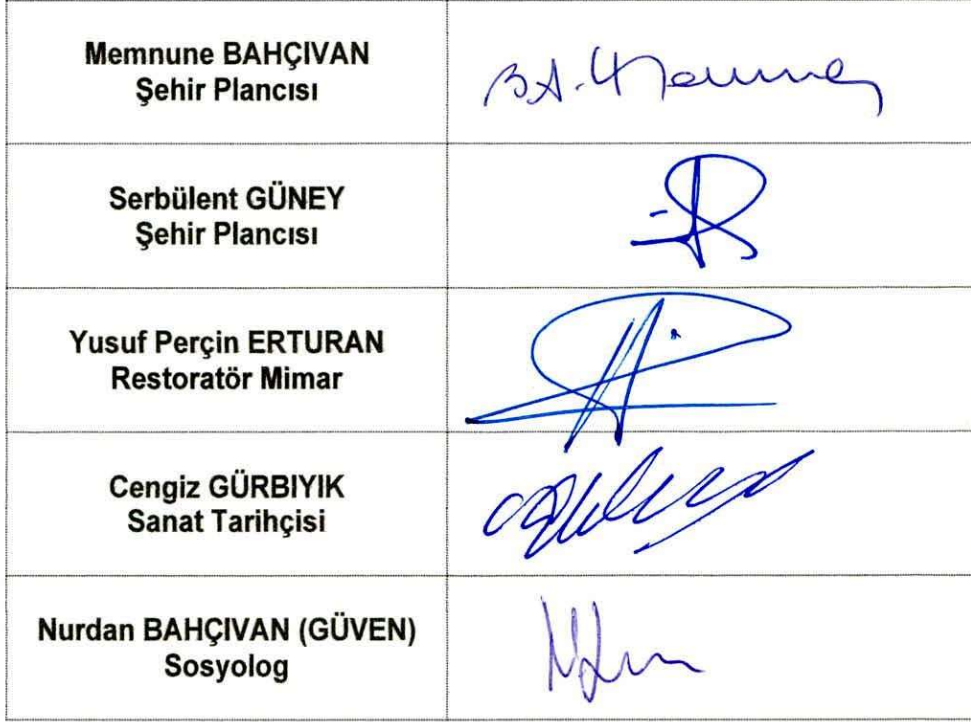 Memnune BAHÇIVAN
Şehir Plancısı
Serbülent GÜNEY
Şehir Plancısı
Yusuf Perçin ERTURAN
Restoratör Mimar
Cengiz GÜRBIYIK
Sanat Tarihçisi
Nurdan BAHÇIVAN (GÜVEN)
Sosyolog